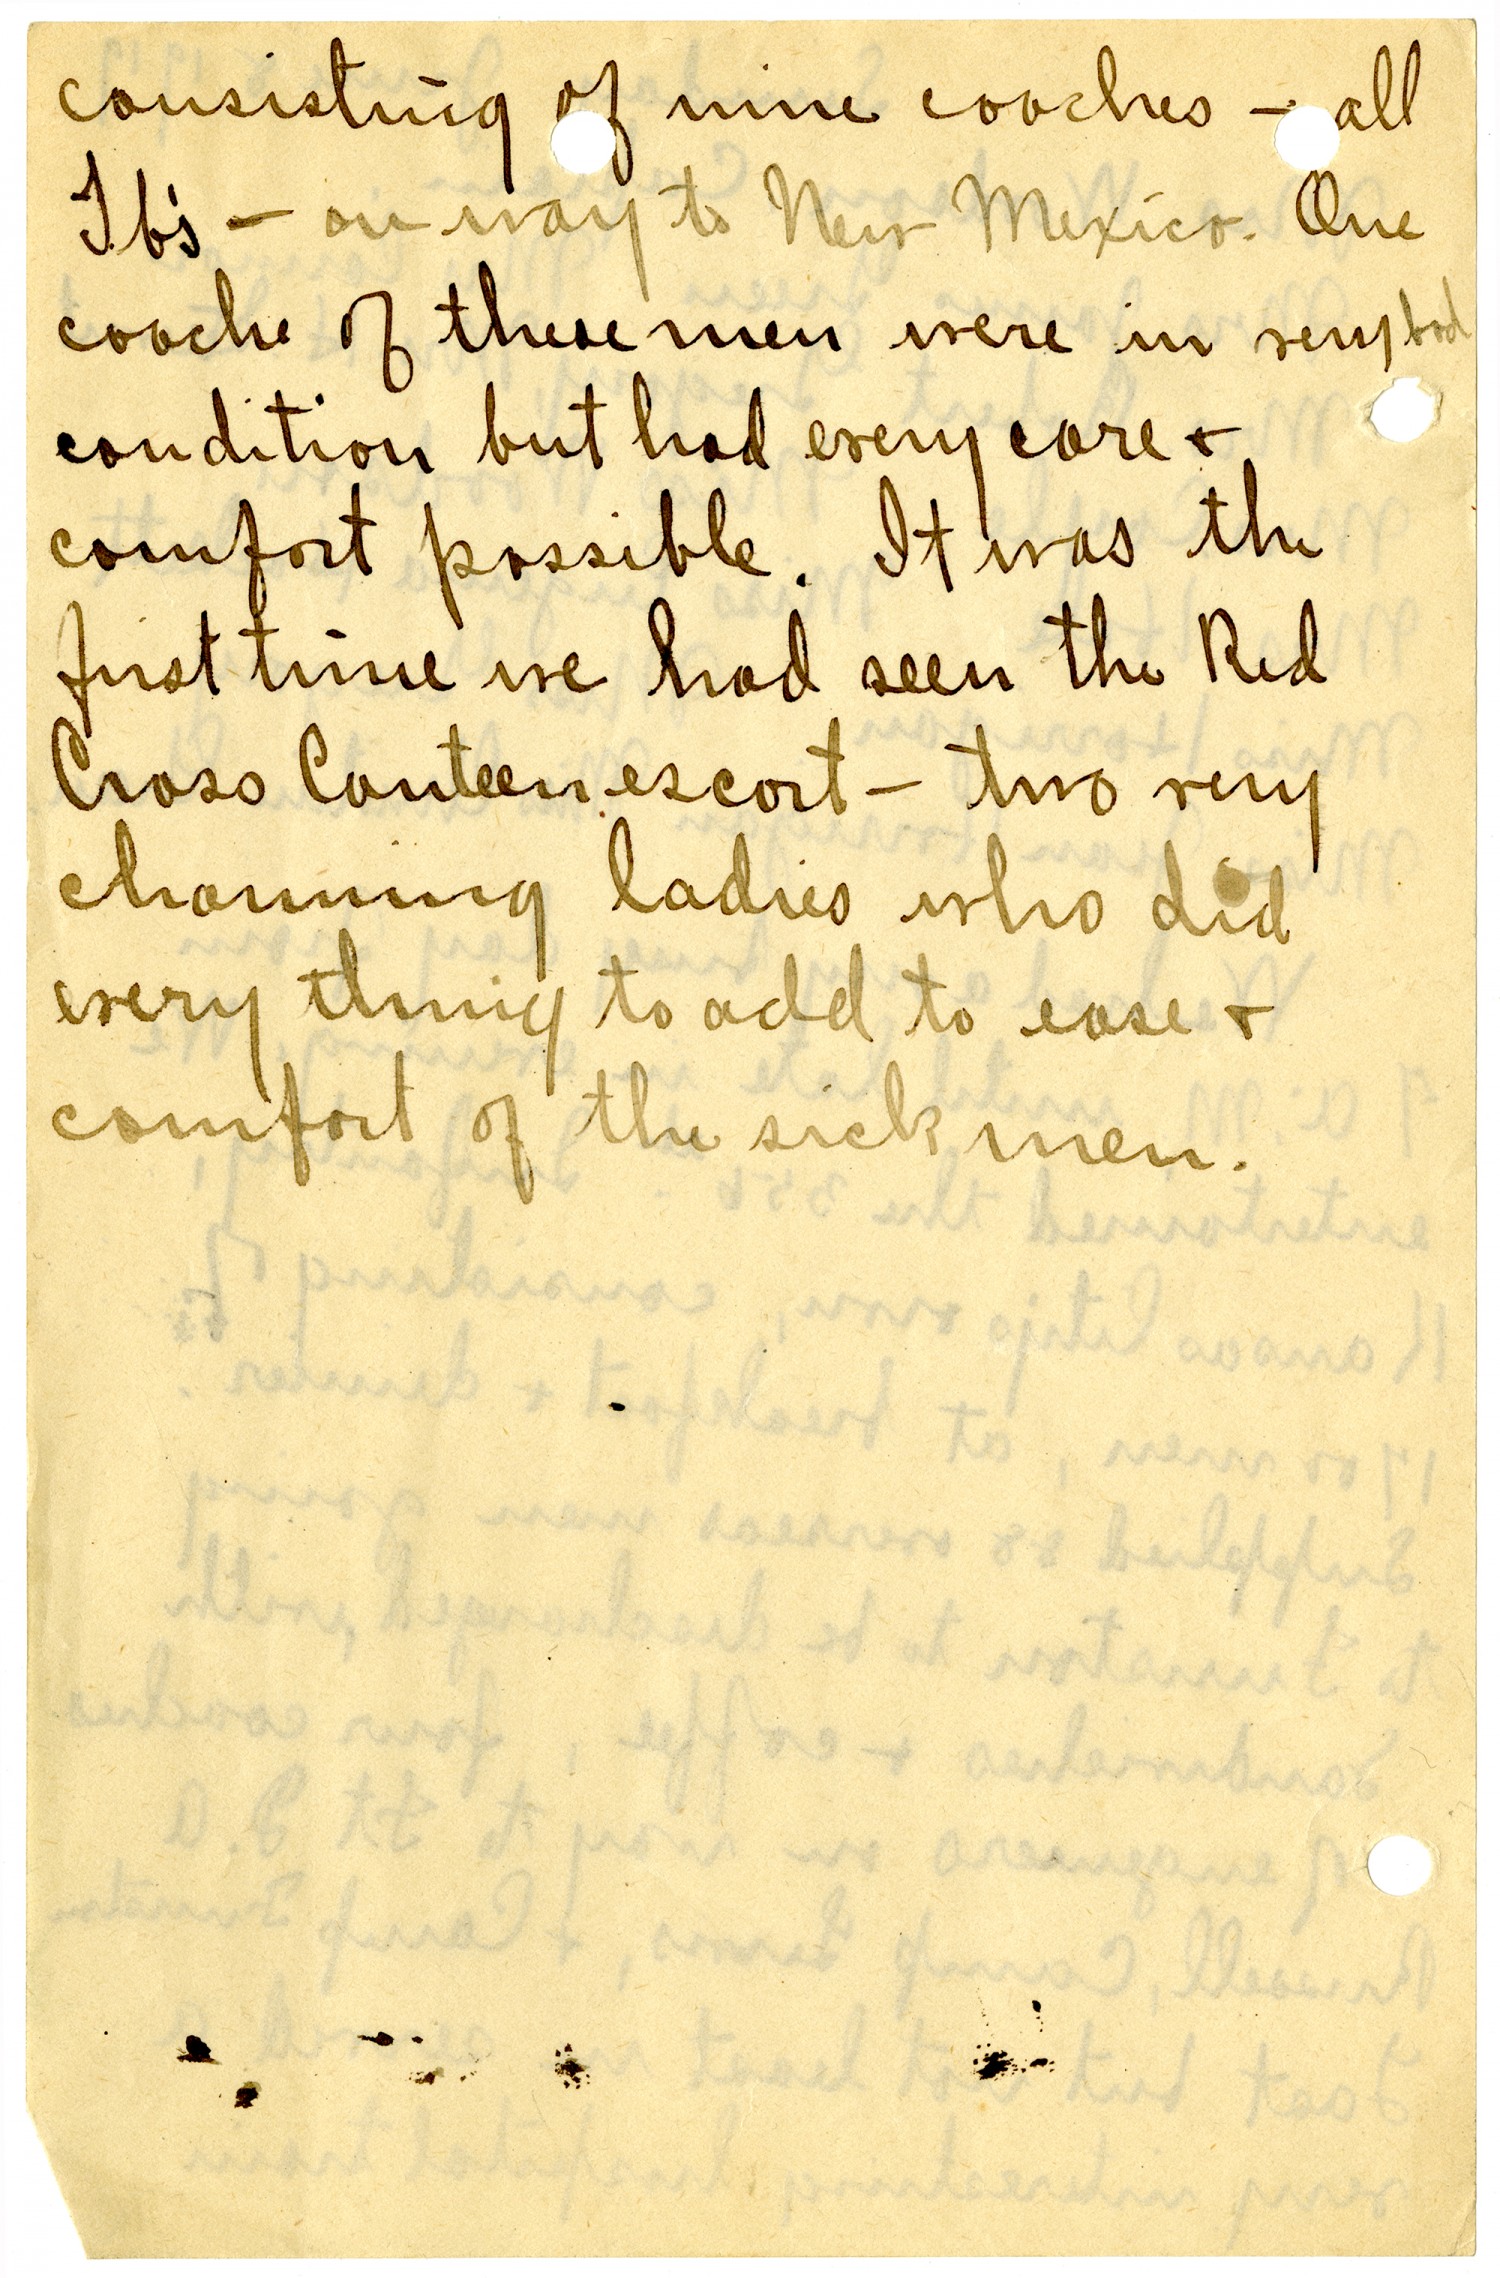 consisting of nine coaches – all
T.b's – on way to New Mexico. One
coache of these men were in very bad
condition but had every care +
comfort possible. It was the
first time we had seen the Red
Cross Canteen escort – two very
charming ladies who did
every thing to add to ease +
comfort of the sick men.